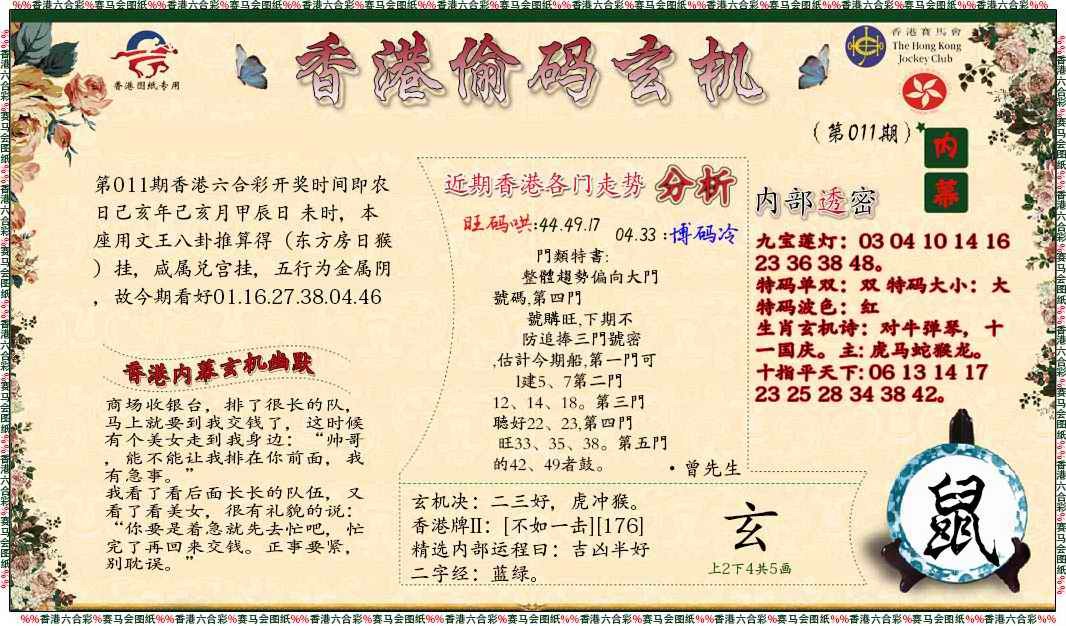 %%香港六合彩%赛马会图纸%%香港六合彩%赛马会图纸%%香港六合彩%赛马会图纸%%香港六合彩%赛马会图纸%%香港六合彩%赛马会图纸%%香港六合彩%赛马会图纸%%香港六合彩%%
香港图纸专用
香港偷码玄机
香港賽馬會
The Hong Kong
Jockey Club
(第011期)
内幕
第011期香港六合彩开奖时间即农
日己亥年己亥月甲辰日 未时，本
座用文王八卦推算得（东方房日猴
）挂，咸属兑宫挂，五行为金属阴
，故今期看好01.16.27.38.04.46
香港内幕玄机幽默
商场收银台，排了很长的队，
马上就要到我交钱了，这时候
有个美女走到我身边：“帅哥
，能不能让我排在你前面，我
有急事。”
我看了看后面长长的队伍，又
看了看美女，很有礼貌的说：
“你要是着急就先去忙吧，忙
完了再回来交钱。正事要紧，
别耽误。”
近期香港各门走势 分析
旺码哄:44.49.17 04.33 :博码冷
門類特書:
整體趨勢偏向大門
號碼,第四門
號購旺,下期不
防追捧三門號密
,估計今期船,第一門可
l建5、7第二門
12、14、18。第三門
聽好22、23,第四門
旺33、35、38。第五門
的42、49者鼓。
·曾先生
内部透密
九宝莲灯：03 04 10 14 16
23 36 38 48。
特码单双：双 特码大小：大
特码波色：红
生肖玄机诗：对牛弹琴，十
一国庆。主: 虎马蛇猴龙。
十指平天下: 06 13 14 17
23 25 28 34 38 42。
玄机决：二三好，虎冲猴。
香港牌II：[不如一击][176]
精选内部运程曰：吉凶半好
二字经：蓝绿。
玄
上2下4共5画
鼠
%%香港六合彩%赛马会图纸%%香港六合彩%赛马会图纸%%香港六合彩%赛马会图纸%%香港六合彩%赛马会图纸%%香港六合彩%赛马会图纸%%香港六合彩%赛马会图纸%%香港六合彩%%